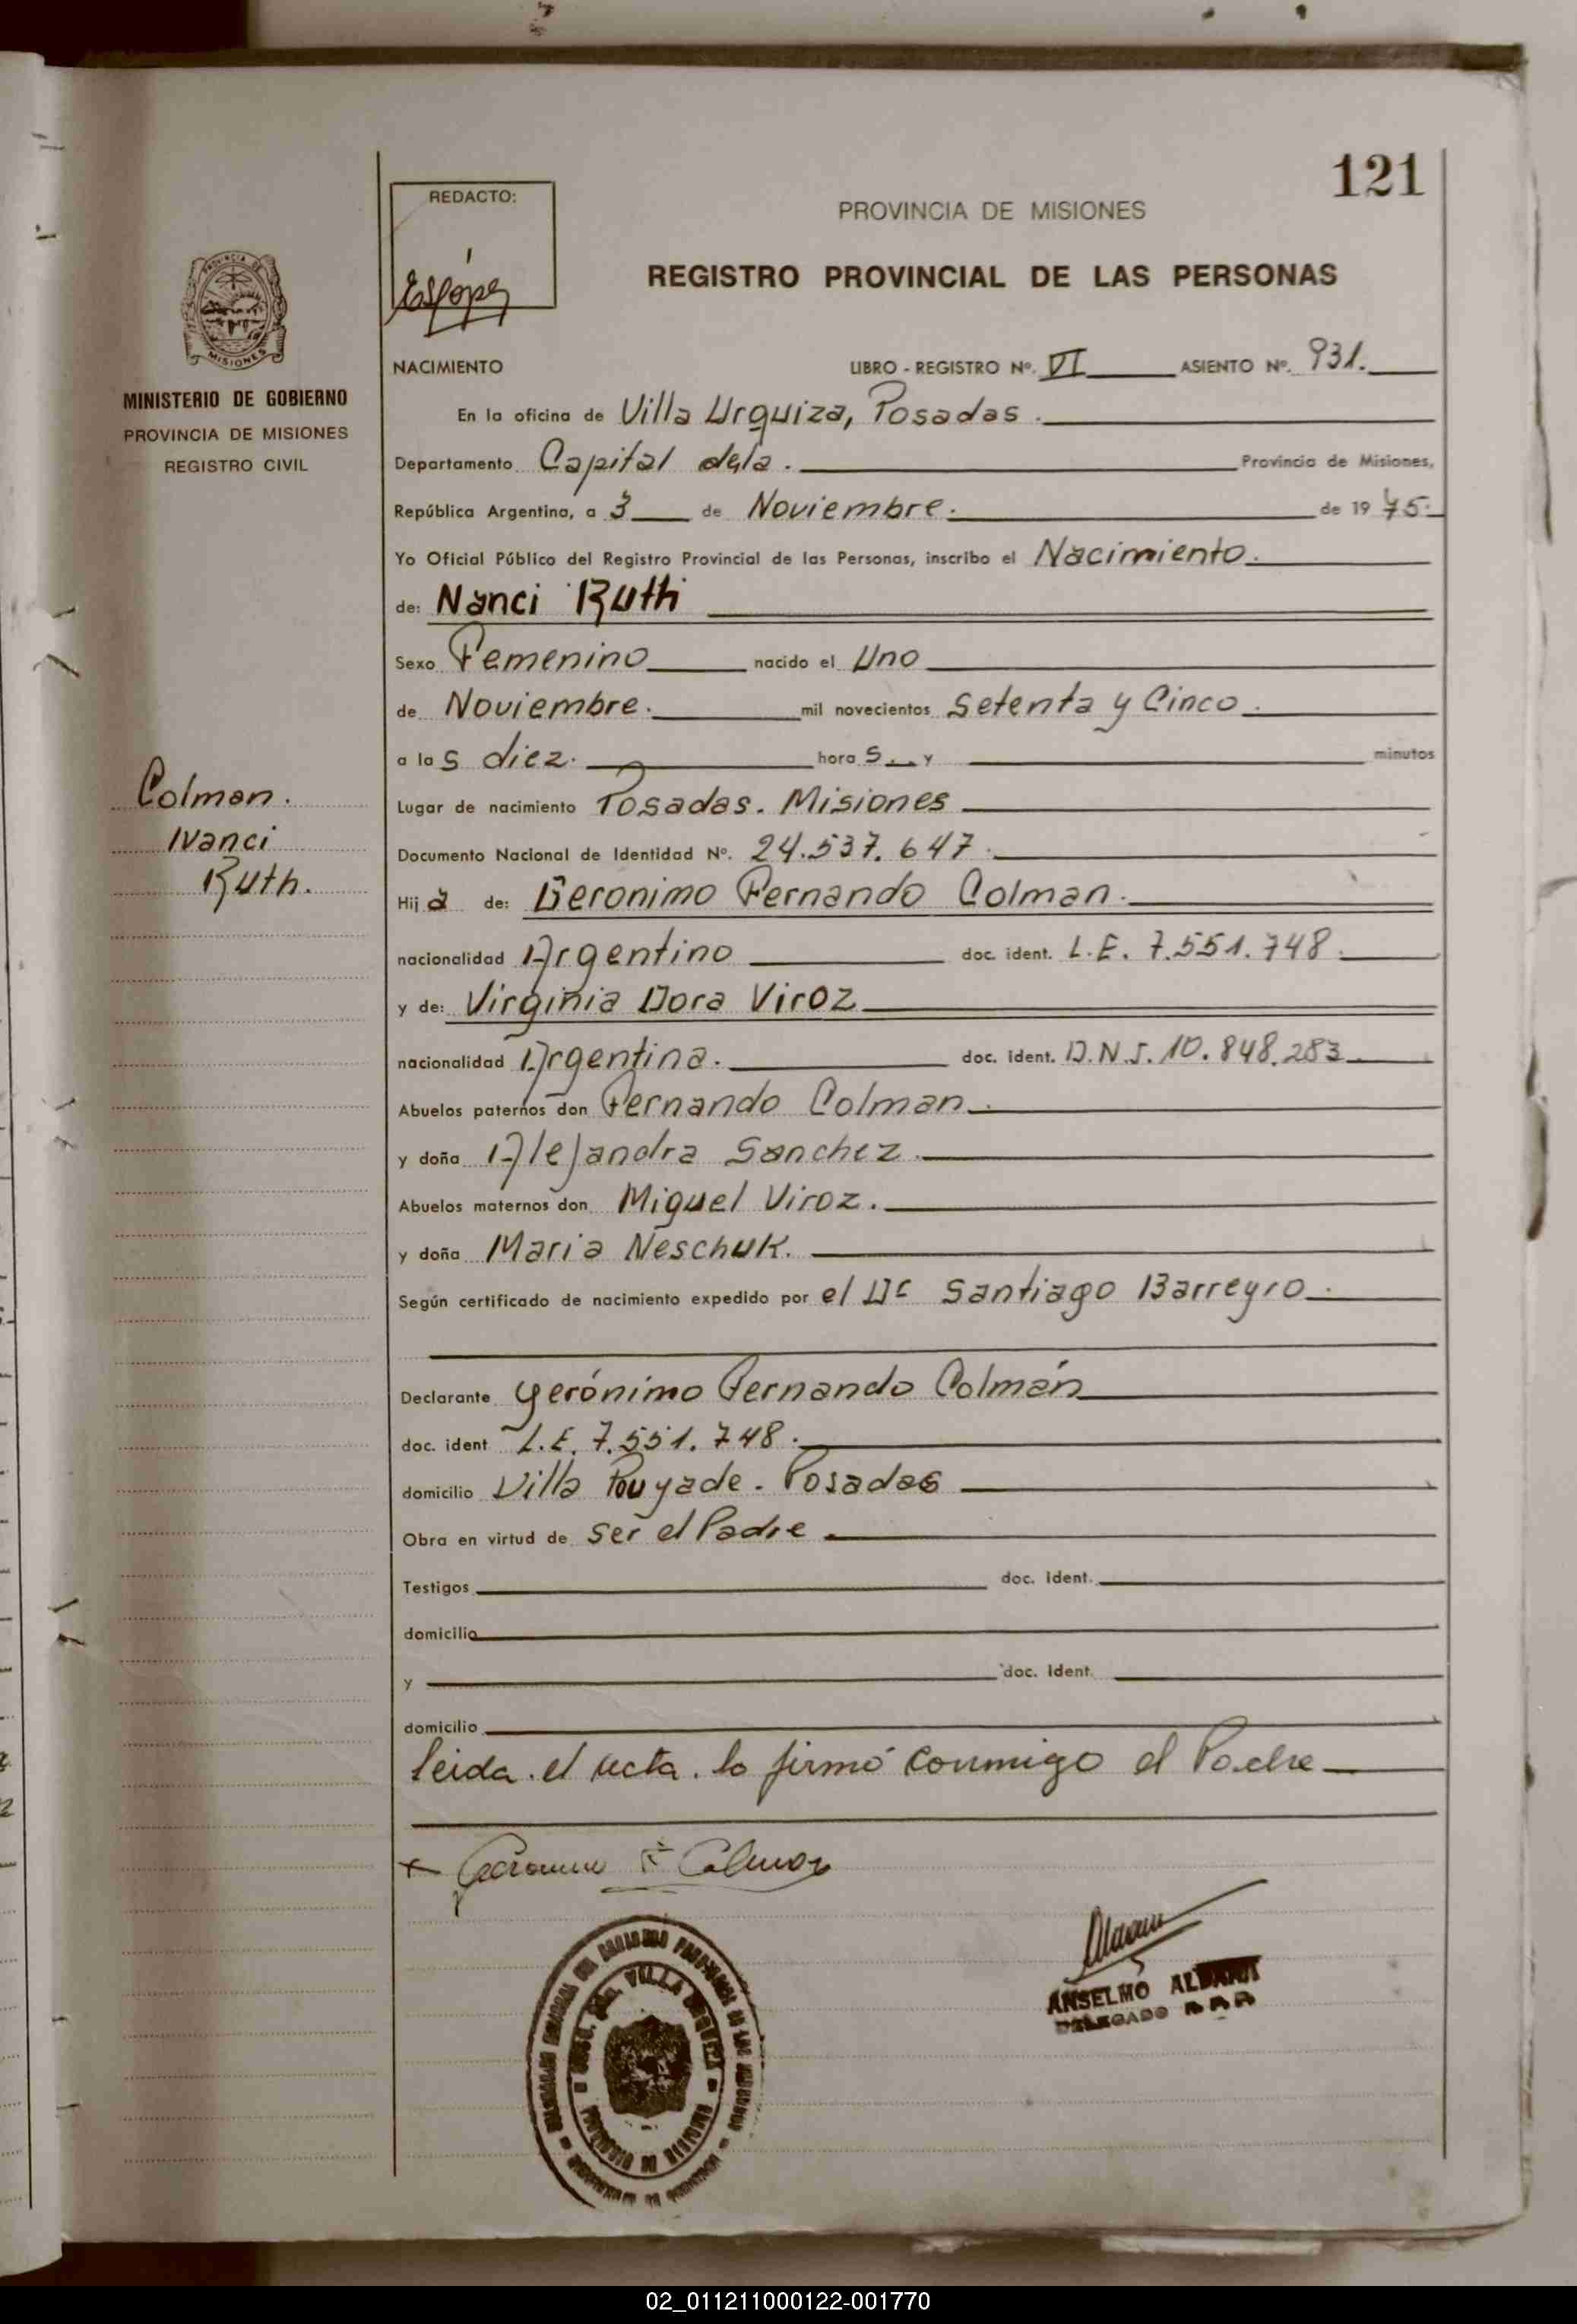 121
REDACTO:
PROVINCIA DE MISIONES
REGISTRO PROVINCIAL DE LAS PERSONAS
PROVINCIA DE
MISIONES
MINISTERIO DE GOBIERNO
PROVINCIA DE MISIONES
REGISTRO CIVIL
NACIMIENTO LIBRO - REGISTRO Nº. VI ASIENTO Nº. 931.
En la oficina de Villa Urquiza, Posadas.
Departamento Capital de la. Provincia de Misiones,
República Argentina, a 3 de Noviembre. de 1975.
Yo Oficial Público del Registro Provincial de las Personas, inscribo el Nacimiento.
de: Nanci Ruth
Sexo Femenino nacido el Uno
de Noviembre. mil novecientos Setenta y Cinco.
a las diez. horas y minutos
Colman.
Nanci
Ruth.
Lugar de nacimiento Posadas. Misiones
Documento Nacional de Identidad Nº. 24.537.647.
Hija de: Geronimo Fernando Colman.
nacionalidad Argentino doc. ident. L.E. 7.551.748.
y de: Virginia Dora Viroz
nacionalidad Argentina. doc. ident. D.N.I. 10.848.283
Abuelos paternos don Fernando Colman.
y doña Alejandra Sanchez.
Abuelos maternos don Miguel Viroz.
y doña Maria Neschuk.
Según certificado de nacimiento expedido por el Dr Santiago Barreyro.
Declarante Gerónimo Fernando Colmán
doc. ident L.E. 7.551.748.
domicilio Villa Pouyade. Posadas
Obra en virtud de ser el Padre
Testigos doc. ident.
domicilio
y doc. ident.
domicilio
leida el acta. lo firmó conmigo el Padre
Geronimo F Colman
ANSELMO
DELEGADO
VILLA URQUIZA
02_011211000122-001770